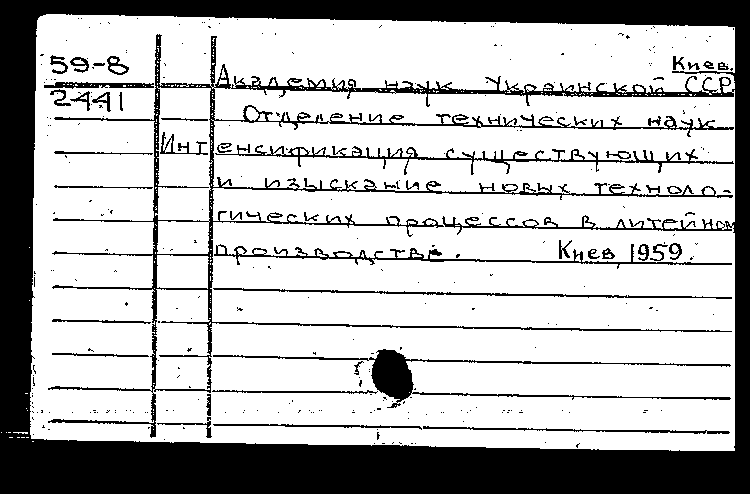 Киев.
59-8
Академия наук Украинской ССР.
2441
Отделение технических наук
Интенсификация существующих
и изыскание новых техноло-
гических процессов в литейном
производстве. Киев, 1959.